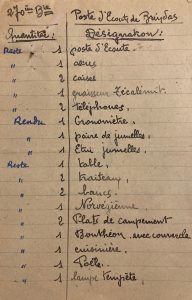 270ème Bie
Poste d'Ecoute de Bruydas
Quantités: Désignation:
Reste 1 poste d'Ecoute.
" 1 accus
" 2 caises
" 1 graisseur Técalémit.
" 2 Téléphones,
Rendu 1 Gronomètre.
" 1 paire de jumelles.
" 1 Etui jumelles.
Reste 1 table,
" 2 traiteau,
" 2 bancs,
" 1 Norvégienne
" 2 Plats de campement
" 1 Bouthéon avec couvercle
" 1 cuisinière.
" 1 Pelle.
" 1 lampe tempête,